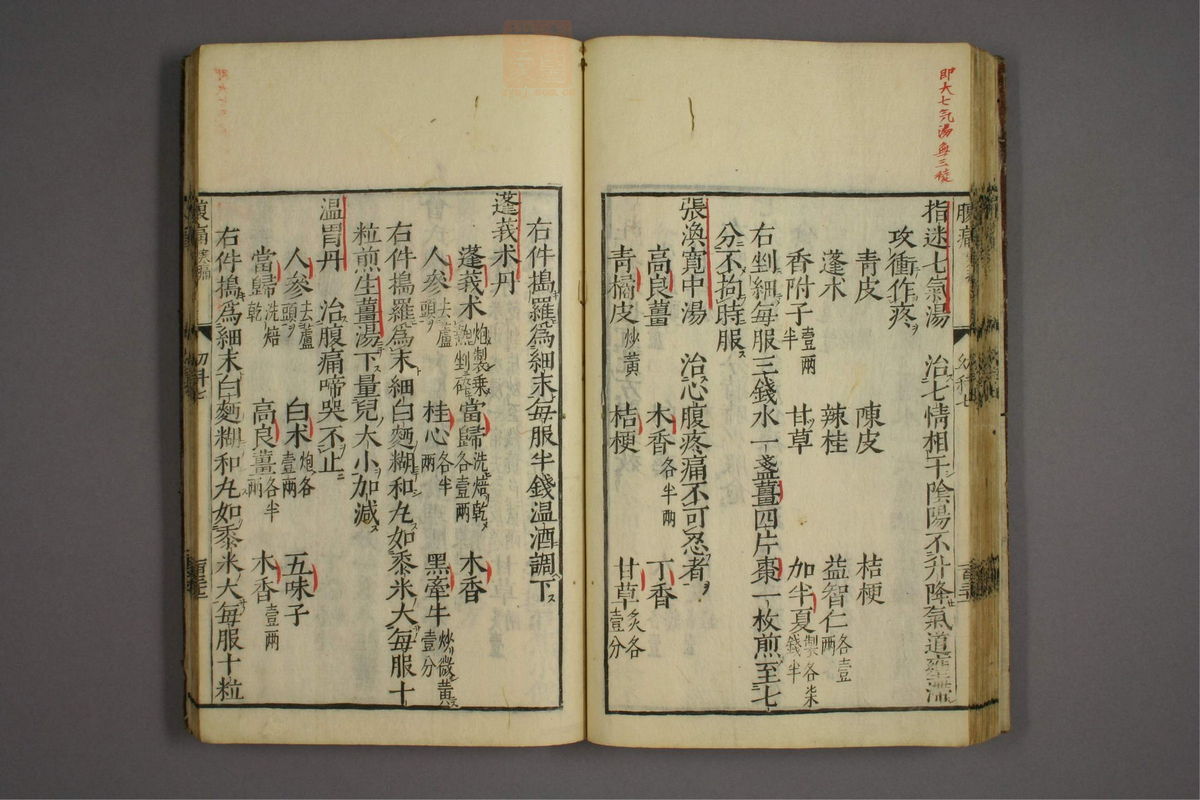 即大七気湯無三稜
腹痛
幼科七
指迷七氣湯 治七情相干陰陽不升降氣道壅滯
攻衝作疼
青皮 陳皮 桔梗
蓬朮 辣桂 益智仁各壹兩
香附子壹兩半 甘草 加半夏製各柒錢半
右剉細每服三錢水一盞薑四片棗一枚煎至七
分不拘時服
張渙寬中湯 治心腹疼痛不可忍者
高良薑 木香各半兩 丁香
青橘皮炒黃 桔梗 甘草炙各壹分
右件搗羅為細末每服半錢温酒調下
蓬莪朮丹
蓬莪朮炮製乗熱剉碎 當歸洗焙乾各壹兩 木香
人參去蘆頭 桂心各半兩 黑牽牛炒微黃壹分
右件搗羅為末細白麪糊和丸如黍米大每服十
粒煎生薑湯下量兒大小加減
温胃丹 治腹痛啼哭不止
人參去蘆頭 白朮炮各壹兩 五味子
當歸洗焙乾 高良薑各半兩 木香壹兩
右件搗為細末白麪糊和丸如黍米大每服十粒
腹痛